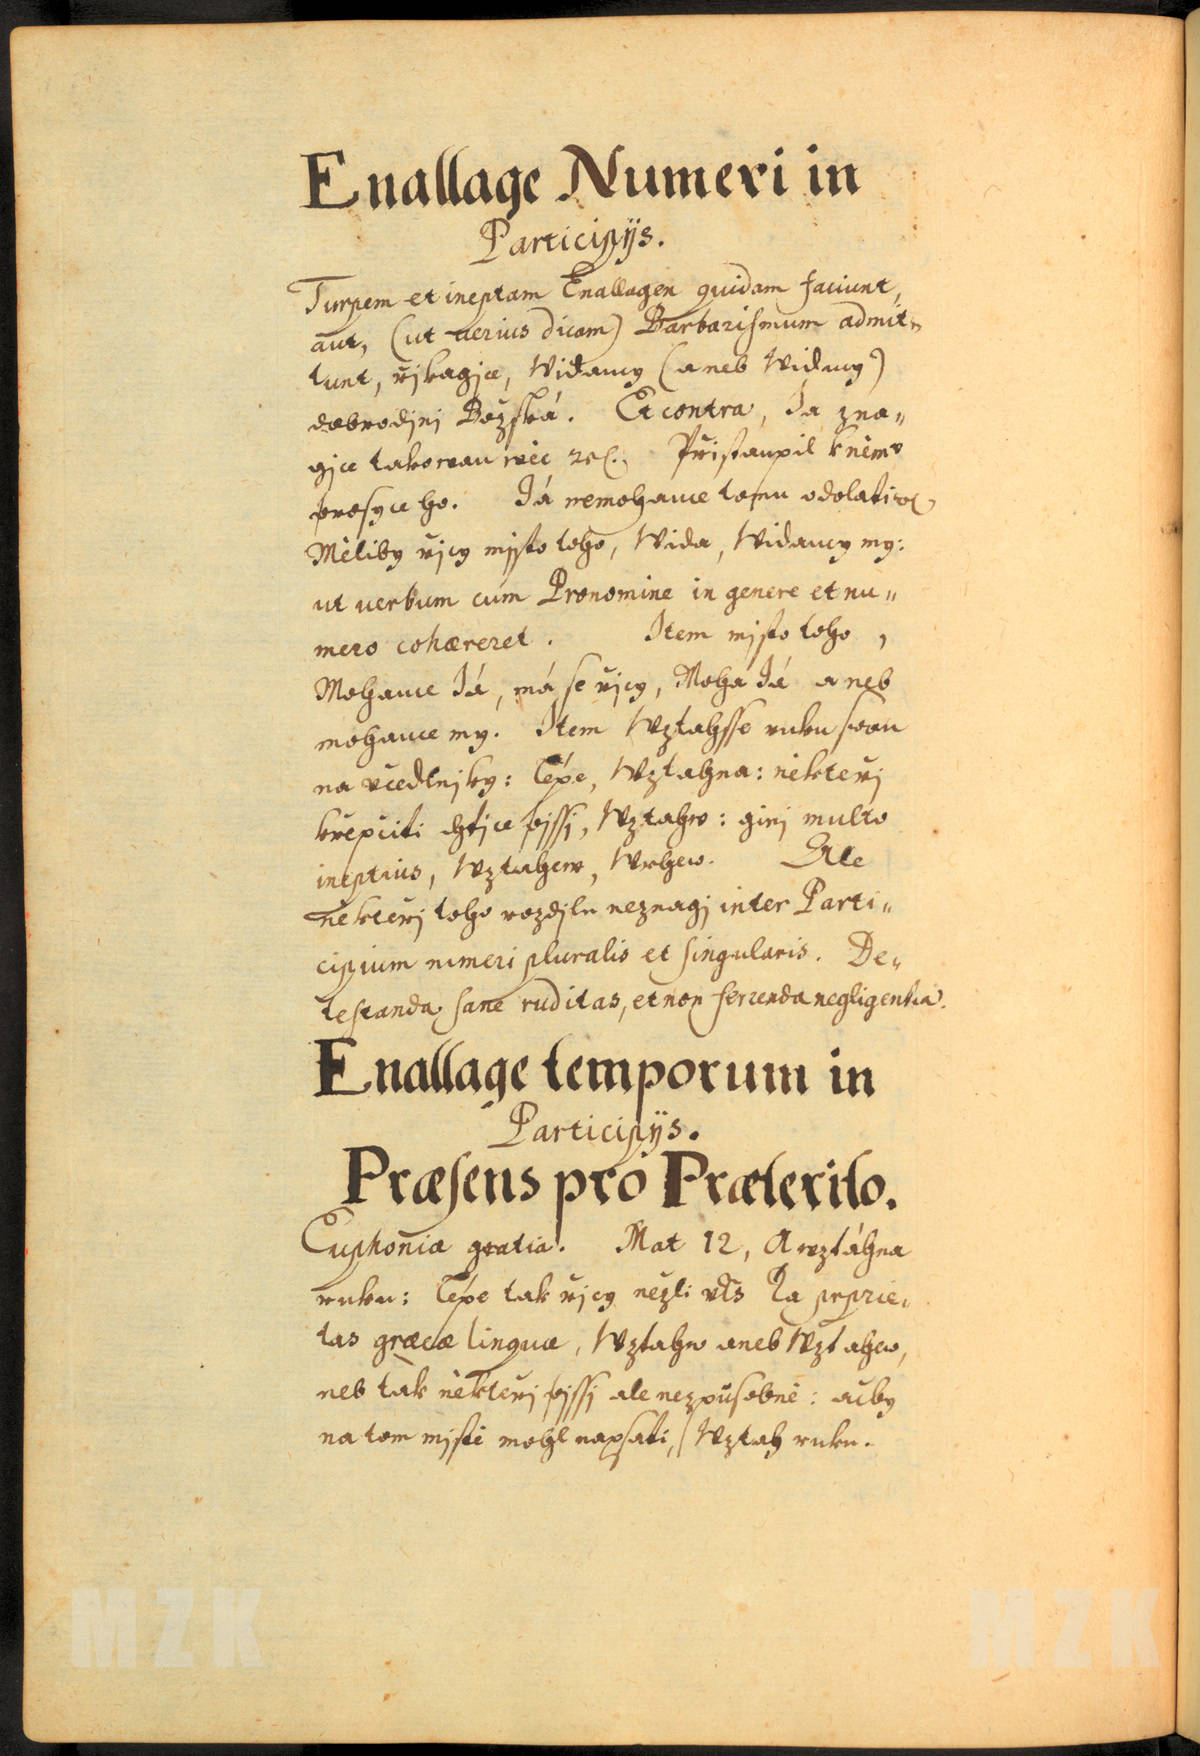 Enallage Numeri in
Participijs.
Turpem et ineptam Enallagen quidam faciunt,
aut, (ut verius dicam) Barbarismum admit„
tunt, řjkagjce, Widaucy (aneb Widucy)
dobrodjnj Božská. Et contra, Ja zna„
gjce takowau wěc etc. Přistaupil k němu
prosyce ho. Já nemohauce tomu odolati etc
Měliby řjcy mjsto toho, Wida, Widaucy my:
ut uerbum cum Pronomine in genere et nu„
mero cohæreret. Item mjsto toho,
Mohauce Já, má se řjcy, Moha Já aneb
mohauce my. Item Wztahsse ruku swau
na včedlnjky: lépe, Wztahna: někteřj
křepčiti chtjce pjssj, Wztahw: ginj multo
ineptius, Wztahew, Wrhew. Ale
někteřj toho rozdjlu neznagj inter Parti„
cipium numeri pluralis et singularis. De„
testanda sane ruditas, et non ferenda negligentia.
Enallage temporum in
Participijs.
Præsens pro Præterito.
Euphoniæ gratia. Mat 12, A wztáhna
ruku: lépe tak řjcy nežli
tas græcæ linguæ, Wztahw aneb Wztahew,
neb tak někteřj pjssj ale nezpůsobně: ačby
na tom mjstě mohl napsati, Wztah ruku.
MZK MZK